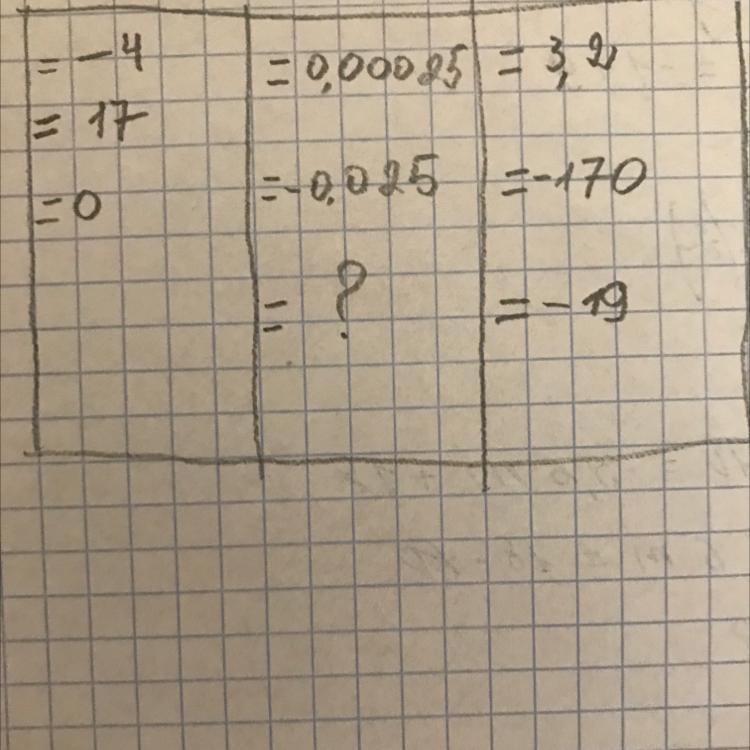 = -4
= 17
= 0
= 0,00025
= -0,025
= ?
= 3,2
= -170
= -19